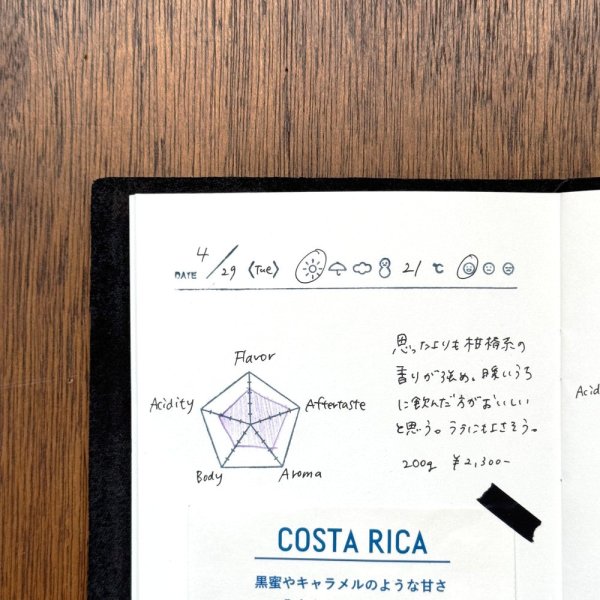 DATE 4/29 〈Tue〉 21 ℃
Flavor
Acidity
Aftertaste
Body
Aroma
思ったよりも柑橘系の
香りが強め。暖いうち
に飲んだ方がおいしい
と思う。ラテにもよさそう。
200g ¥2,300-
Acid
COSTA RICA
黒蜜やキャラメルのような甘さ